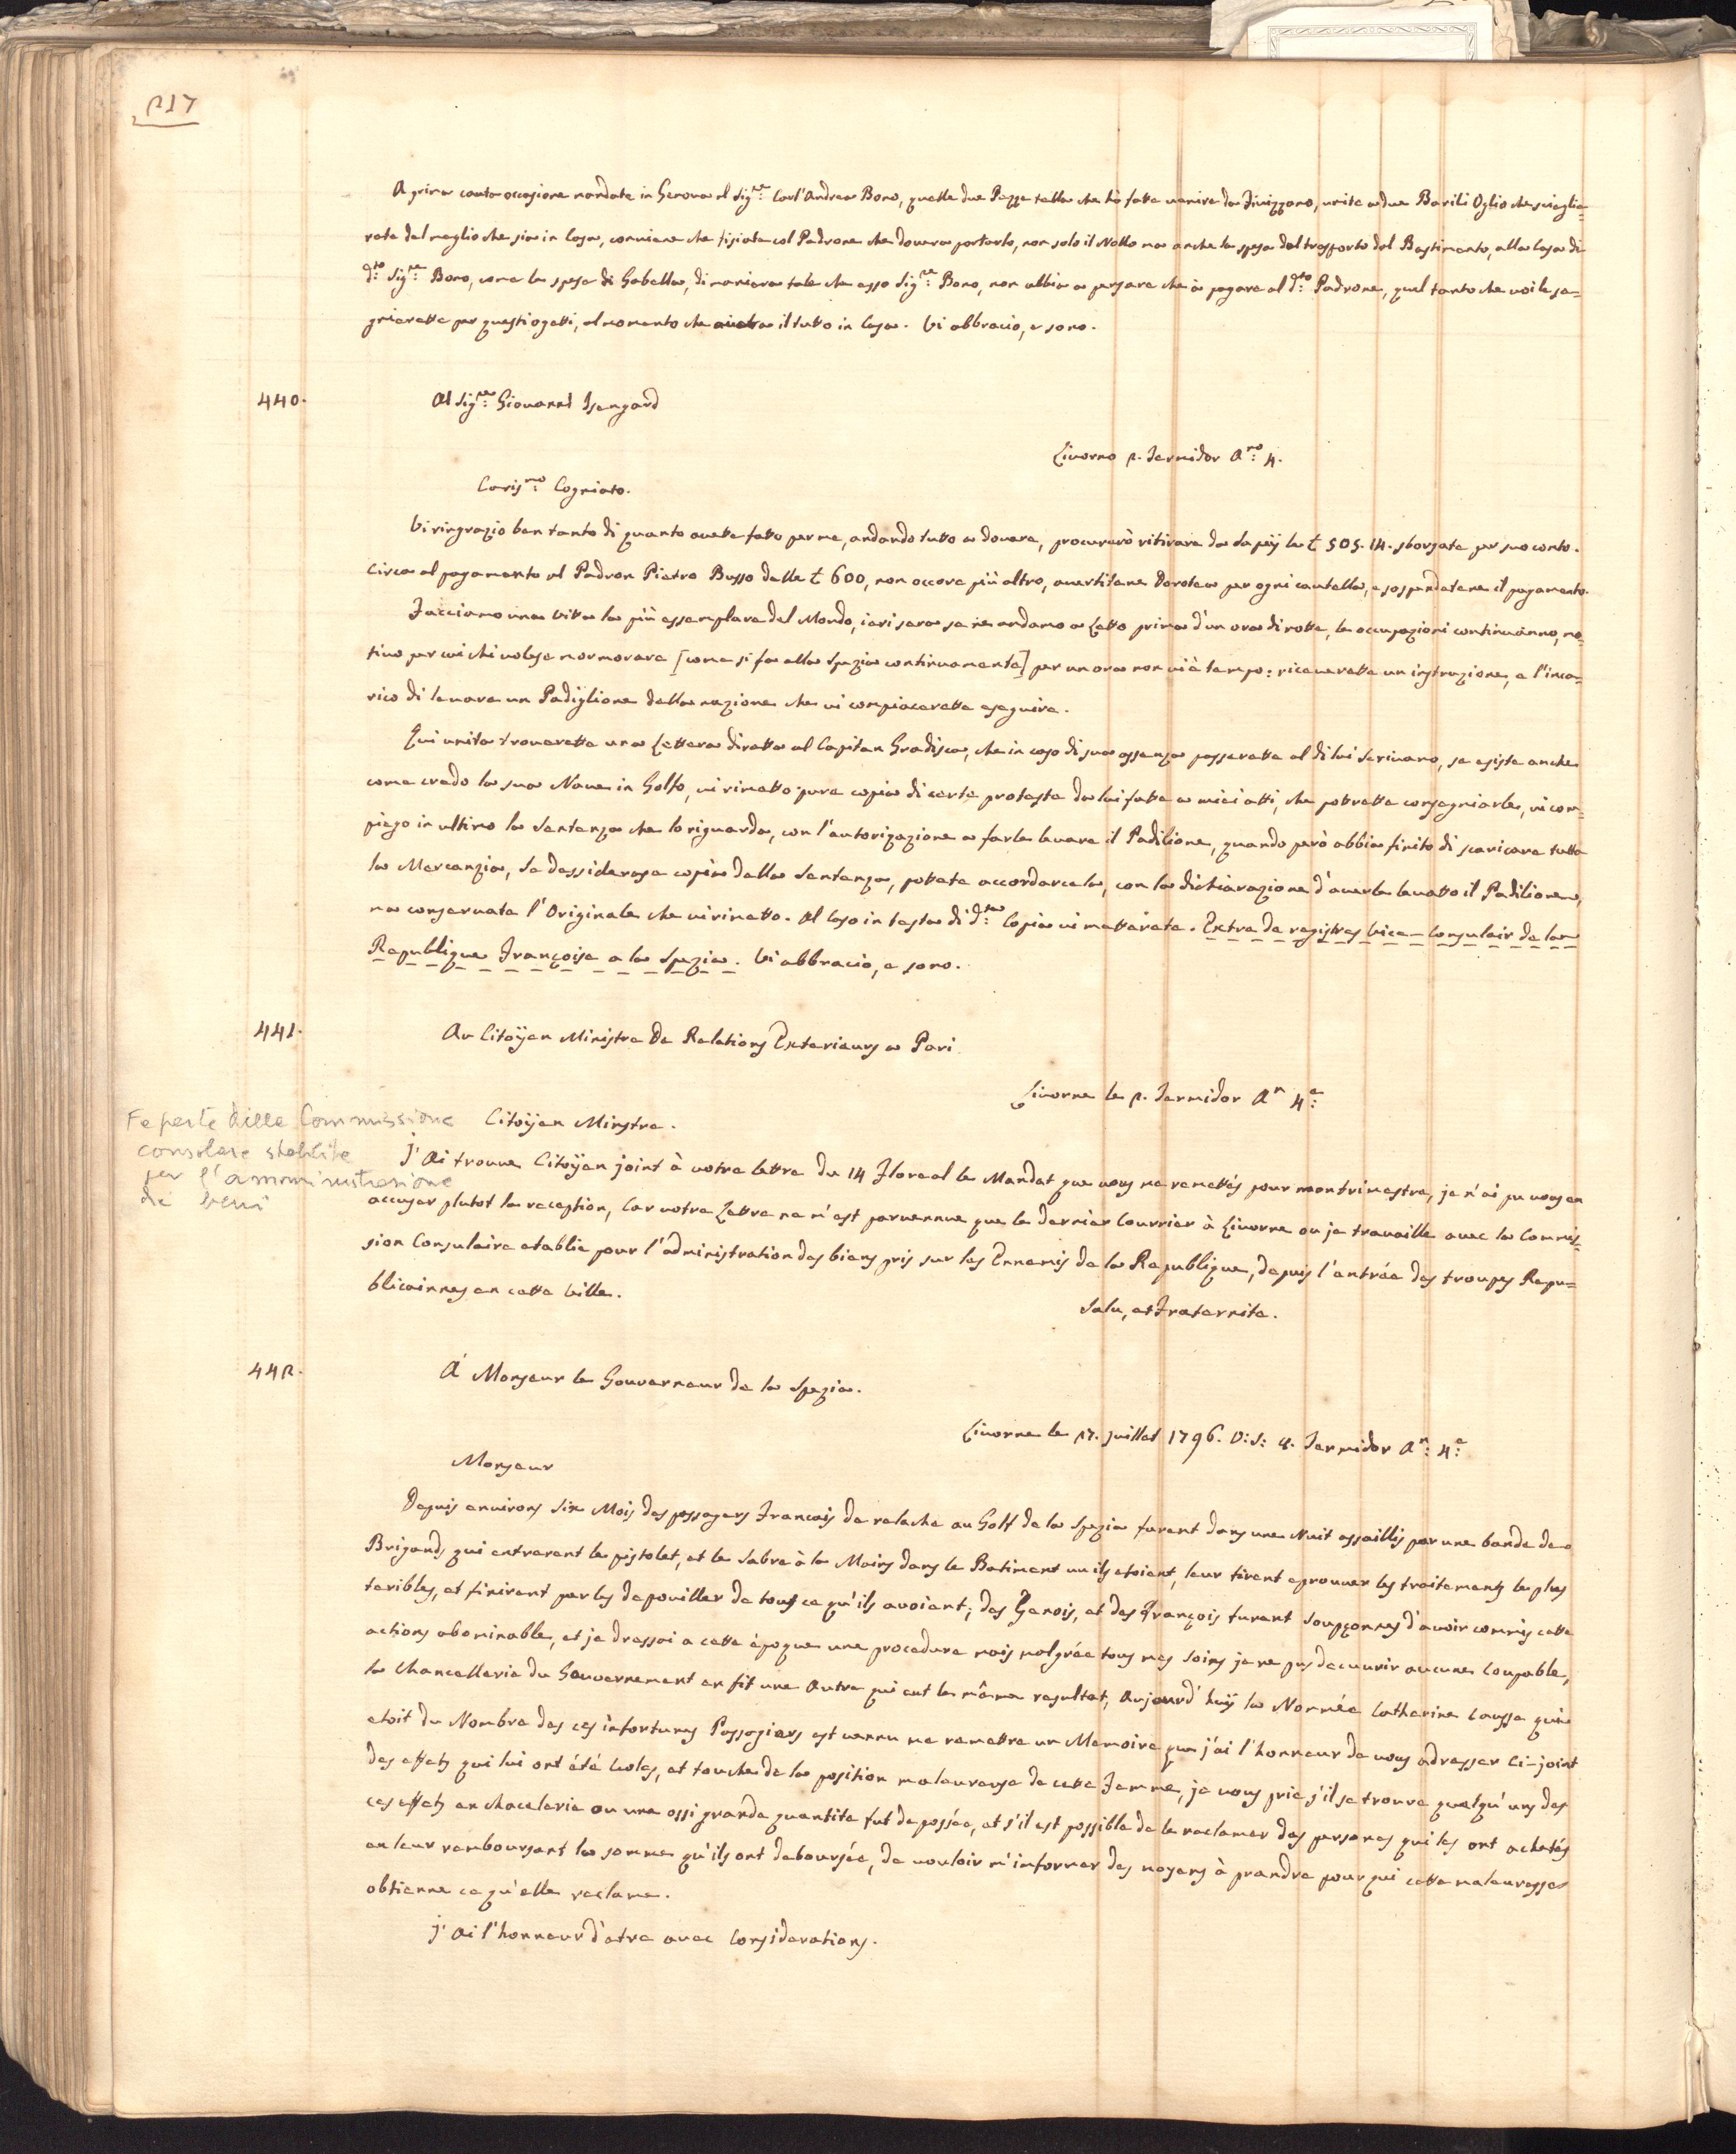 217
A prima cauta occasione mandate in Genova al Sig:re Carl'Andrea Bono, quelle due Pezze tella che hò fatte venire da Fivizzano, unite a due Barili Oglio che scieglie=
rete del meglio che sia in Casa, conviene che fisiate col Padrone che dovera portarlo, non solo il Nollo ma anche la spesa del trasporto dal Bastimento, alla Casa di
d:to Sig:re Bono, come la spese di Gabella, di maniera tale che esso Sig:re Bono, non abbia a pensare che à pagare al d:to Padrone, quel tanto che voi le se=
gnierette per questi ogetti, al momento che avera il tutto in Casa. Vi abbracio, e sono.
440.
Al Sig:re Giovanni Isengard
Livorno 2. Termidor A:no 4.
Caris:mo Cogniato.
Vi ringrazio ben tanto di quanto avette fatto per me, andando tutto a dovere, procurerò ritirare da la £ 505.14. sborsate per suo conto.
Circa al pagamento al Padron Pietro Busso delle £ 600, non occore più altro, avertitene Dorotea per ogni cautella, e sospendetene il pagamento.
Facciamo una Vitta la più essemplare del Mondo, ieri sera se ne andamo a Letto prima d'un ora di notte, le occupazioni continuanno, mo=
tivo per cui chi volese mormorare [come si fa alla Spezia continuamente] per un ora non vi è tempo: riceverette un instruzione, e l'inca=
rico di levare un Padiglione della nazione che vi compiacerette eseguire.
Qui unita troverette una Lettera diretta al Capitan Gradisca, che in caso di sua assenza passerette al di lui Scrivano, se esiste anche
come credo la sua Nave in Golfo, vi rimetto pure copia di certe proteste da lui fatte a miei atti, che potrette consegniarle, vi com=
piego in ultimo la Sentenza che lo riguarda, con l'autorizazione a farle levare il Padilione, quando però abbia finito di scaricare tutta
la Mercanzia, Se dessiderase copia della Sentenza, potete accordarcela, con la dichiarazione d'averle levatto il Padilione,
ma conservate l'Originale che vi rimetto. Al Caso in testa di d:ta Copia vi metterete. Extra de registres Vice-Consulair de la
Republique Françoise a la Spezia. Vi abbracio, e sono.
441.
Au Citöyen Ministre De Relations Exterieurs a Pari
Livorne le 2. Termidor A:n 4:e
Fa parte della Commissione
consolare stabilita
per l'amministrazione
dei beni
Citöyen Minstre.
J'Ai trouve Citöyen joint à votre lettre du 14 Floreal le Mandat que vous me remettés pour mon trimestre, je n'ai pu vous en
accuser plutot la reception, Car votre Lettre ne m'est parvennue que le dernier Courrier à Livorne ou je travaille avec la Commis=
sion Consulaire etablie pour l'administration des biens pris sur les Ennemis de la Republique, depuis l'entrée des troupes Repu=
blicainnes en cette Ville.
Salu, et Fraternite.
442.
A' Monseur le Gouverneur de la Spezia.
Livorne le 27. juillet 1796. V:S: 8. Termidor A:n 4:e
Monseur
Depuis environs Six Mois des passagers Francois de relache au Golf de la Spezia furent dans une Nuit assaillis par une bande de
Brigands qui entrerent le pistolet, et le Sabre à la Mains dans le Batiment uu ils etoient, leur firent eprouver les traitements les plus
teribles, et finirent par les depouiller de tout ce qu'ils avoient; des Genois, et des François furent Soupçonnes d'avoir commis cette
actions abominable, et je dressai a cette èpoque une procedure mais malgrée tous mes Soins je ne pus decuvrir aucune Coupable,
la Chancellerie du Gouvernement en fit une Autre qui eut le même resultat, Aujourd'huÿ la Nommée Catherine Causse qui
etoit du Nombre des ces infortunes Passagiers est vennu me remettre un Memoire que j'ai l'honneur de vous adresser Ci-joint
des effets qui lui ont été Voles, et touche de la position malaureuse de cette Femme, je vous prie s'il se trouve quelqu'uns des
ces effets en chacelerie ou une ossi grande quantite fut depossée, et s'il est possible de le reclamer des persones qui les ont achetés
en leur remboursant la somme qu'ils ont deboursée, de vouloir m'informer des moyens à prandre pour qui cette malauresse
obtienne ce qu'elle reclame.
J'Ai l'honneur d'etre avec Considerations.